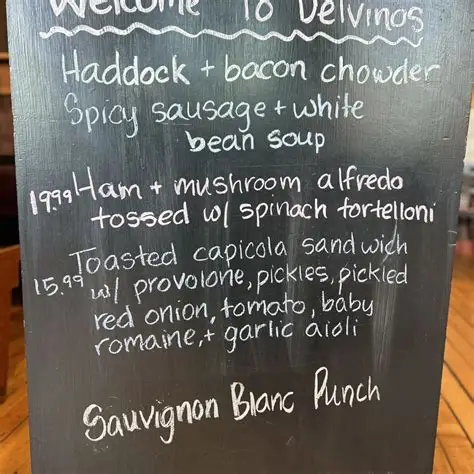 Welcome To Delvinos
Haddock + bacon chowder
Spicy sausage + white
bean soup
19.99 Ham + mushroom alfredo
tossed w/ spinach tortelloni
Toasted capicola sandwich
15.99 w/ provolone, pickles, pickled
red onion, tomato, baby
romaine, + garlic aioli
Sauvignon Blanc Punch